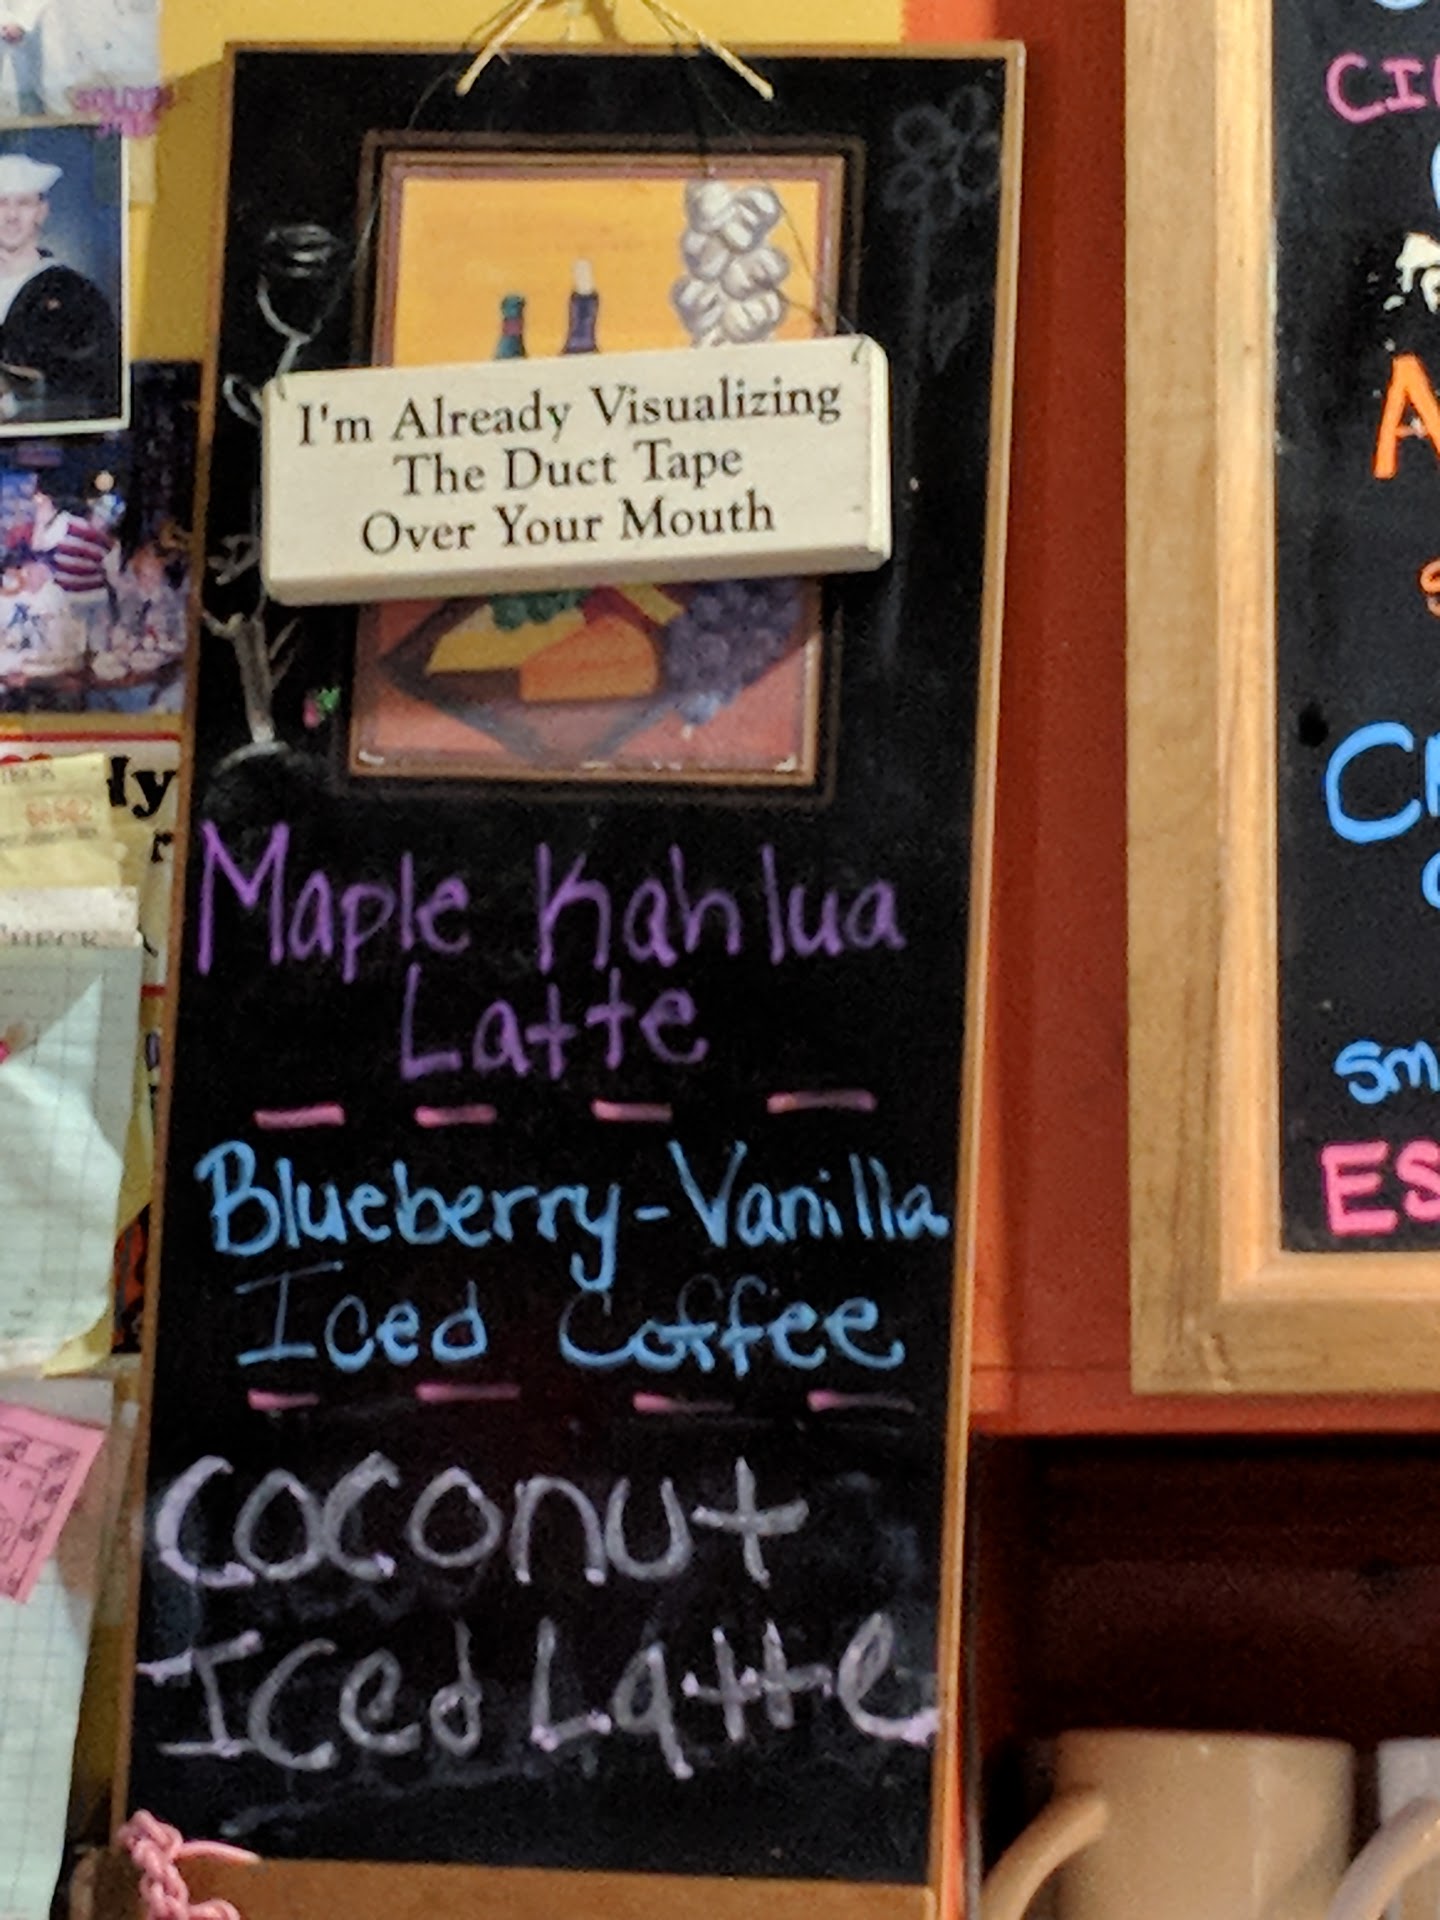 I'm Already Visualizing
The Duct Tape
Over Your Mouth
Maple Kahlua
Latte
Blueberry-Vanilla
Iced Coffee
Coconut
Iced Latte
CI
A
sm
ES